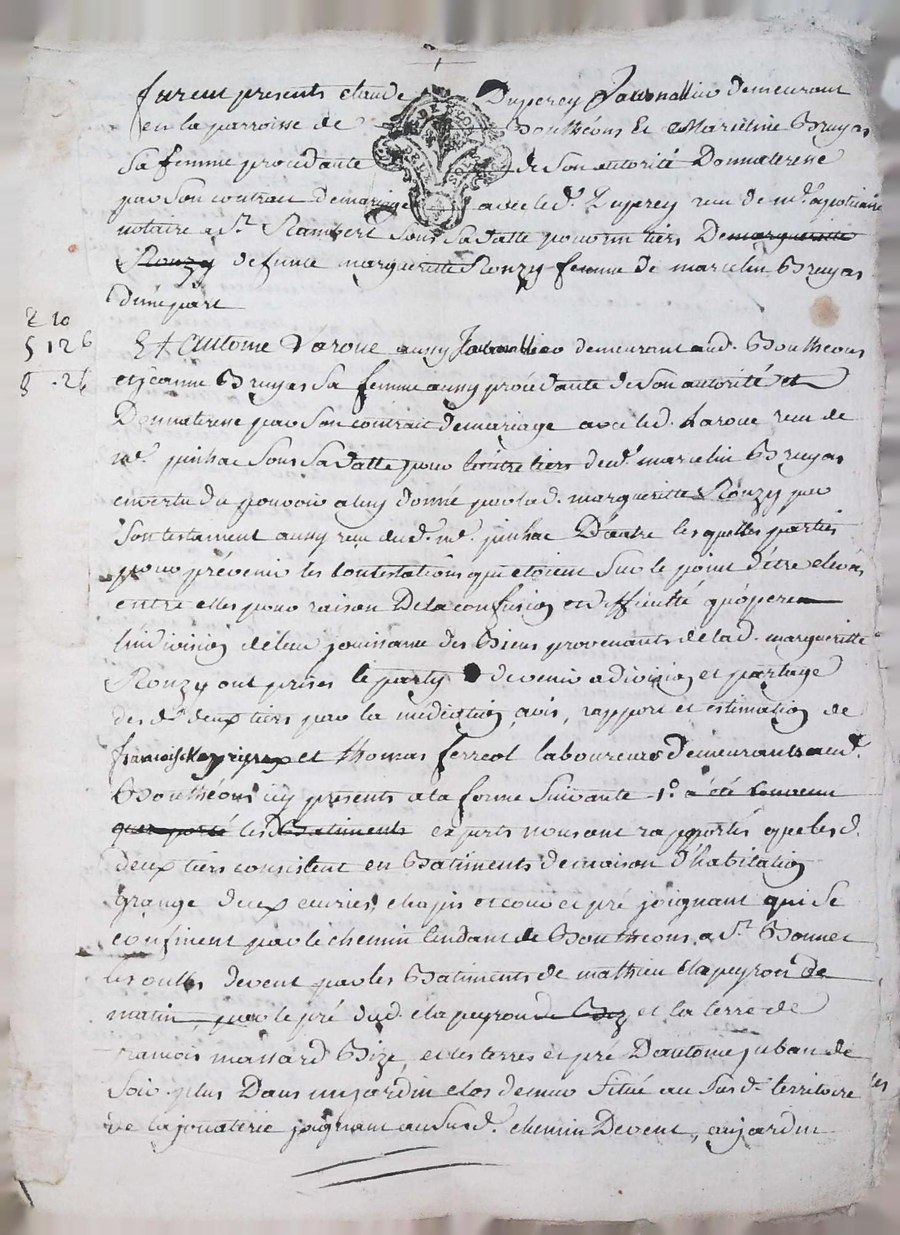 furent presents claude Duperey Journallier demeurant
en la parroisse de Bouthéons Et Marceline Bruyas
sa femme procedante de son autorité Donnaterese
par son contrat de mariage avec led. Duperey reçu de me. apoticaire
notaire a St. Rambert sous sa datte pour un tiers De margueritte
Ronzy defunte margueritte Ronzy femme de marcelin Bruyas
d'une part
Et Antoine Laroue aussy Journallier demeurant aud. Bouthéons
et jeanne Bruyas sa femme aussy procédante de son autorité et
Donnaterese par son contrait de mariage avec led. Laroue reçu de
me. pinhac sous sa datte pour l'autre tiers dud. marcelin Bruyas
en vertu du pouvoir a luy donné par lad. margueritte Ronzy par
son testament aussy reçu dud. me. pinhac D'autre lesquelles parties
pour prévenir les contestations qui etoient sur le point d'être elevés
entre elles pour raison De la confusion et difficulté qu'opere
l'indivision de leur jouissance des Biens provenants de lad. margueritte
Ronzy ont prises le party de venir a division et partage
des ds. deux tiers par la mediation, avis, rapport et estimation de
françois et thomas ferreol laboureurs demeurants aud.
Bouthéons icy presents a la forme suivante 1o. a été convenu
les Batiments experts nous ont rapportés que les d.
deux tiers consistent en Batiments de maison d'habitation
grange deux ecuries, chapis et cour et pré joignant qui se
confinent par le chemin tendant de Boutheons a St. Bonnet
les oulles devent par les Batiments de mathieu chapeyron de
matin, par le pré dud. chapeyron de Biz et la terre de
francois massard Bize, et les terres et pré D'antoine juban de
soir. plus Dans un jardin clos de mur situé au susd. territoire
de la jouaterie joignant au susd. chemin Devent, au jardin